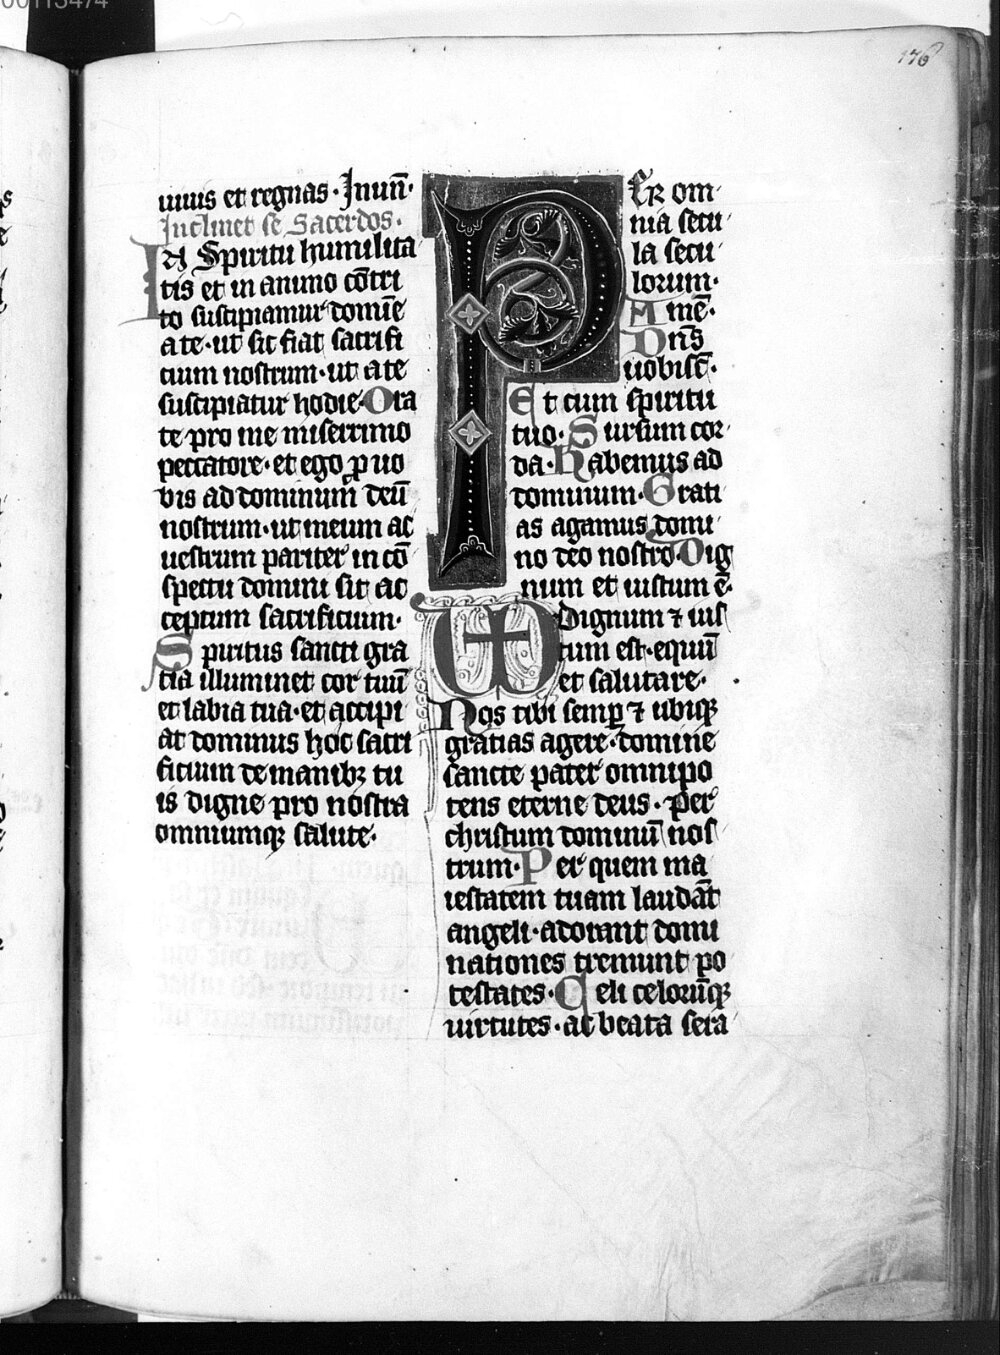 00113474
176
uiuis et regnas · In un̄ ·
Inclinet se Sacerdos ·
In Spiritu humilita
tis et in animo cōtri
to suscipiamur domīe
a te · ut sic fiat sacrifi
cium nostrum · ut a te
suscipiatur hodie · Ora
te pro me miserrimo
peccatore · et ego ꝓ uo
bis ad dominum deū
nostrum · ut meum ac
uestrum pariter in cō
spectu domini sit ac
ceptum sacrificium ·
Spiritus sancti gra
tia illuminet cor tuū
et labia tua · et accipi
at dominus hoc sacri
ficium de manibꝫ tu
is digne pro nostra
omniumqꝫ salute ·
PER om
nia secu
la secu
lorum ·
Amē ·
Dn̄s
uobisc̄ ·
Et cum spiritu
tuo · Sursum cor
da · Habemus ad
dominum · Grati
as agamus domi
no deo nostro Dig
num et iustum ē ·
Dignum ⁊ ius
tum est · equū
et salutare ·
Nos tibi semꝑ ⁊ ubiqꝫ
gratias agere · domine
sancte pater omnipo
tens eterne deus · per
christum dominū nos
trum · Per quem ma
iestatem tuam laudāt
angeli · adorant domi
nationes tremunt po
testates · Celi celorūqꝫ
uirtutes · ac beata sera